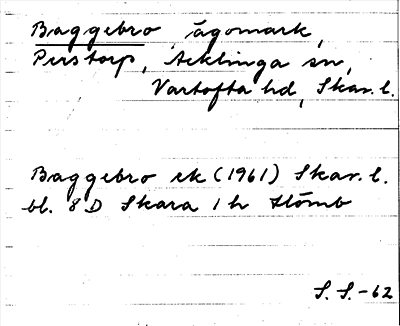 Baggebro, ägomark,
Perstorp, Acklinga sn,
Vartofta hd, Skar. l.
Baggebro ek (1961) Skar. l.
bl. 8 D Skara 1 h Stömb
S. S. -62